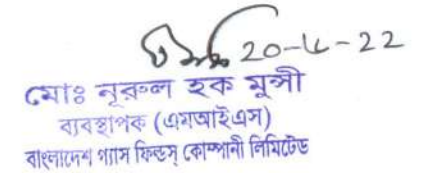 20-৬-22
মোঃ নূরুল হক মুন্সী
ব্যবস্থাপক (এমআইএস)
বাংলাদেশ গ্যাস ফিল্ডস্ কোম্পানী লিমিটেড